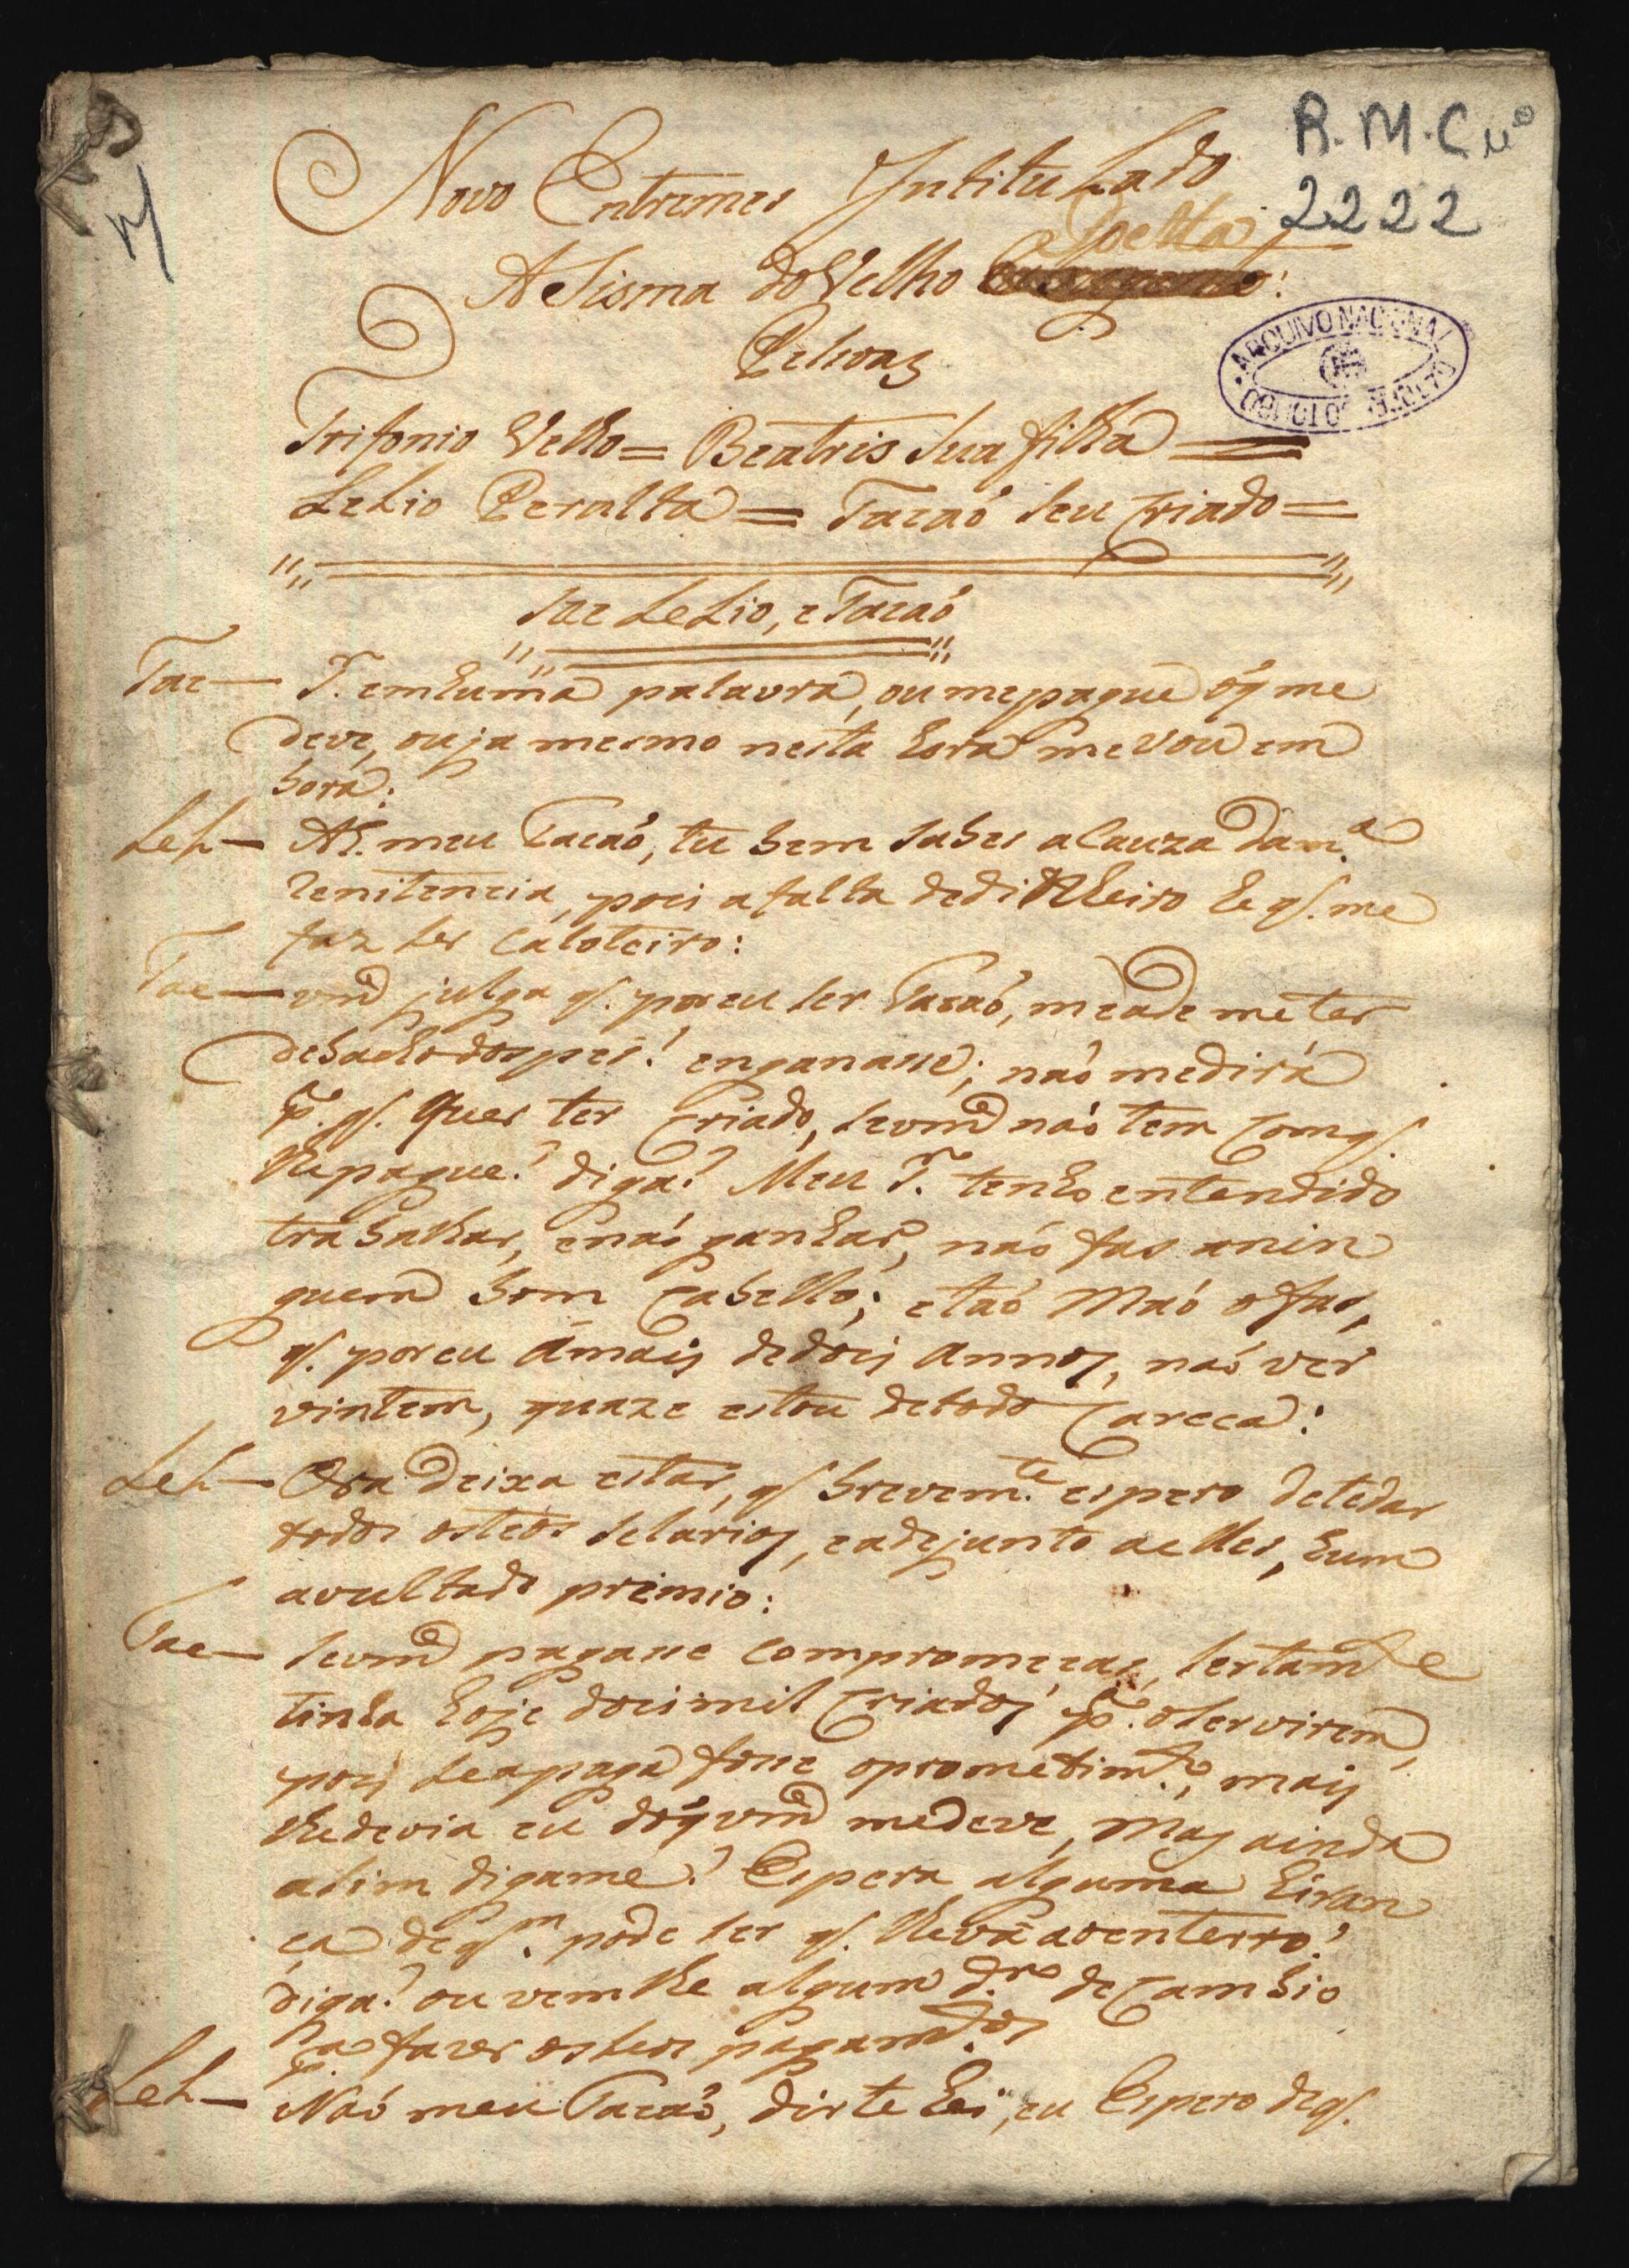 R. M. C nº
2222
Novo Entremes Intitulado
Poeta
A Sisma do Velho
Pesoas
ARQUIVO NACIONAL
Trifonio Velho = Beatris sua filha =
Lelio Peralta = Tacaó seu Criado =
Sae Lelio, e Tacaó
Tac— Sr. em huma palavra, ou me pague óq me
deve, ou ja mesmo nesta hora me vou em
bora:
Lel— Ah. meu Tacaó, tu bem sabes a cauza da m.ª
renitencia, pois a falta de dinheiro he q. me
faz ser caloteiro:
Tac— vmd julga q. por eu ser Tacaó, me ade meter
debacho dos pes! enganasse; naó me dirá
pª. q. quer ter Criado, se vmd naó tem Com q.
lhe pague? diga? Meu Sr. tenho entendido
trabalhar, e naó ganhar, naó fas a nin
guem bom Cabello; e taó Maó o fas,
q. por eu á mais de dois annos, naó ver
vintem, quaze estou de todo Careca:
Lel— Ora deixa estar, q. brevem.te espero de te dar
todos os teos selarios, e adejunto a elles, hum
avultado premio:
Tac— Se vmd pagasse com promecas, sertam.te
tinha hoje dois mil Criados pª. o servirem,
pois se a paga fosse o prometim.to, mais
lhe devia eu dóq vmd me deve, Mas ainda
asim digame? Espera alguma heran
ca de q.m pode ser q. lhe vá ao enterro?
diga? ou vem lhe algum d.ro de Cambio
pª fazer os seos pagam.tos
Lel— Naó meu Tacaó, dirte hei, eu Espero de q.